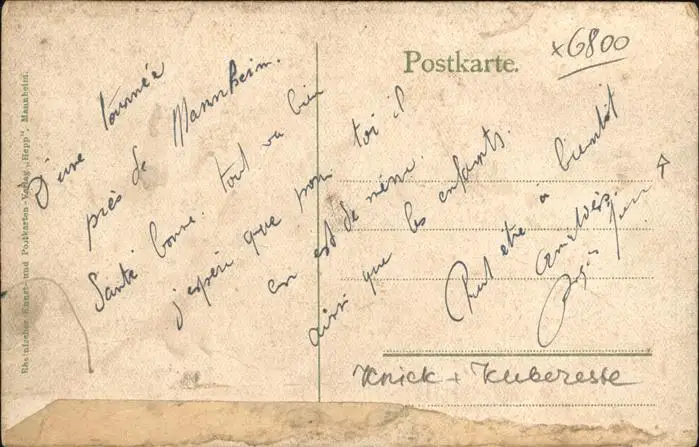 Postkarte.
x6800
D'une tournée
près de Mannheim.
Santé bonne. tout va bien
j'espère que pour toi il
en est de même.
ainsi que les enfants.
Peut être à bientôt
Amitiés.
Knick + Kuberesse
Rheinischer Kunst- und Postkarten-Verlag „Hepp", Mannheim.